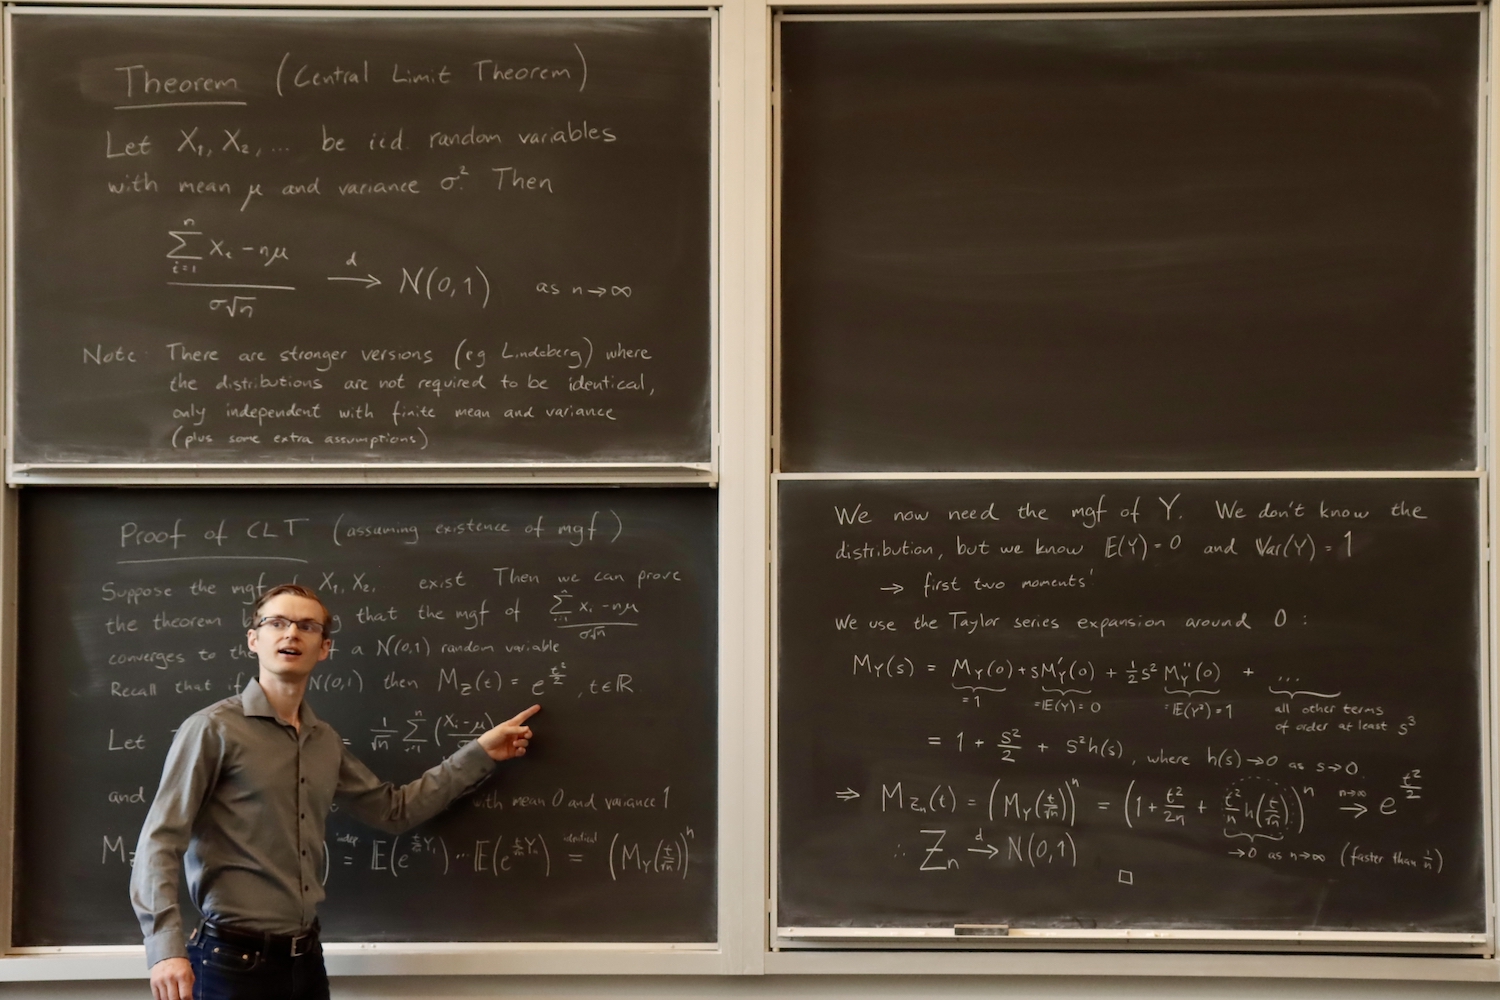 Theorem (Central Limit Theorem)
Let X₁, X₂, ... be iid random variables
with mean μ and variance σ². Then
(∑_{i=1}^{n} Xᵢ - nμ) / (σ√n) →ᵈ N(0,1) as n→∞
Note: There are stronger versions (eg Lindeberg) where
the distributions are not required to be identical,
only independent with finite mean and variance
(plus some extra assumptions)
Proof of CLT (assuming existence of mgf)
Suppose the mgf X₁, X₂, exist Then we can prove
the theorem that the mgf of (∑_{i=1}^{n} Xᵢ - nμ) / (σ√n)
converges to the a N(0,1) random variable
Recall that if N(0,1) then M_Z(t) = e^{t²/2}, t∈ℝ
Let = 1/√n ∑_{i=1}^{n} (Xᵢ-μ)
and with mean 0 and variance 1
=^{indep.} 𝔼(e^{t/√n Y₁}) ... 𝔼(e^{t/√n Yₙ}) =^{identical} (M_Y(t/√n))ⁿ
We now need the mgf of Y. We don't know the
distribution, but we know 𝔼(Y) = 0 and Var(Y) = 1
→ first two moments!
We use the Taylor series expansion around 0:
M_Y(s) = M_Y(0) + sM'_Y(0) + ½s² M''_Y(0) + ...
=1 =𝔼(Y)=0 =𝔼(Y²)=1 all other terms
of order at least s³
= 1 + s²/2 + s²h(s), where h(s)→0 as s→0
⇒ M_{Zₙ}(t) = (M_Y(t/√n))ⁿ = (1 + t²/2n + t²/n h(t/√n))ⁿ →^{n→∞} e^{t²/2}
→0 as n→∞ (faster than 1/n)
∴ Zₙ →ᵈ N(0,1) □